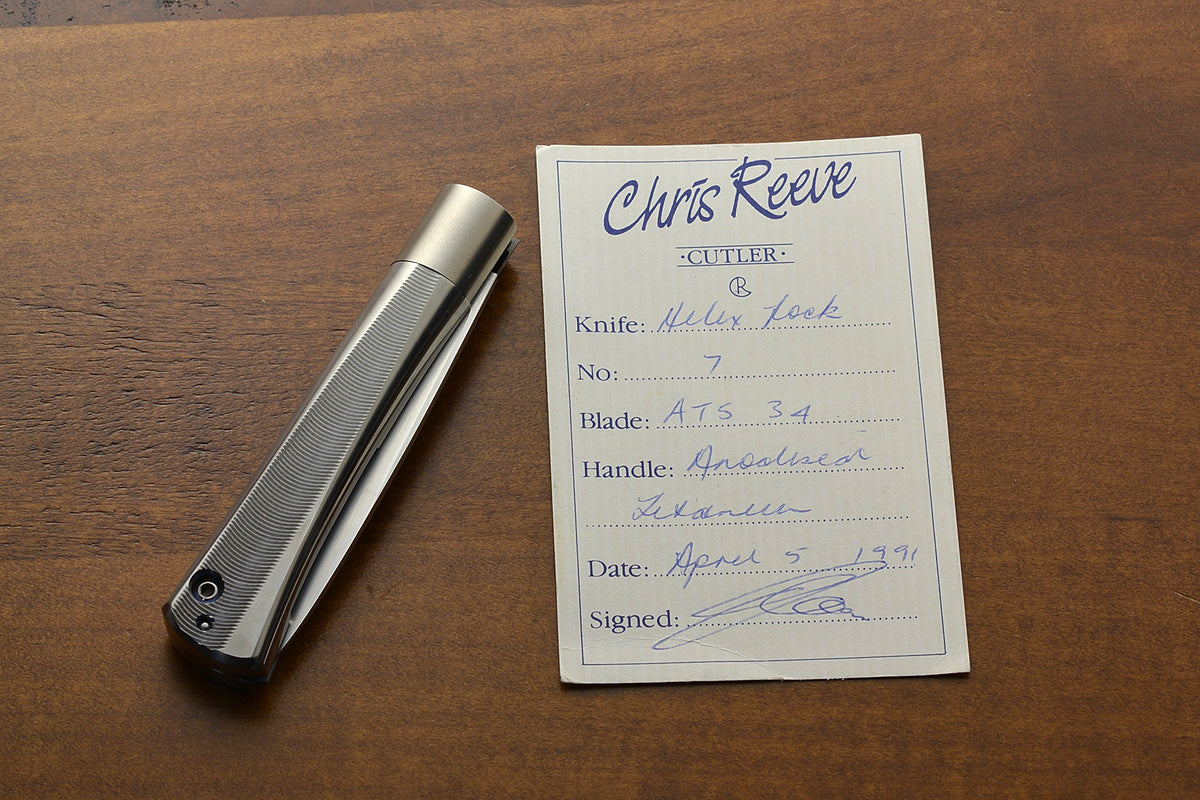 Chris Reeve
·CUTLER·
Knife: Helix Lock
No: 7
Blade: ATS 34
Handle: Anodised
Titanium
Date: April 5 1991
Signed: